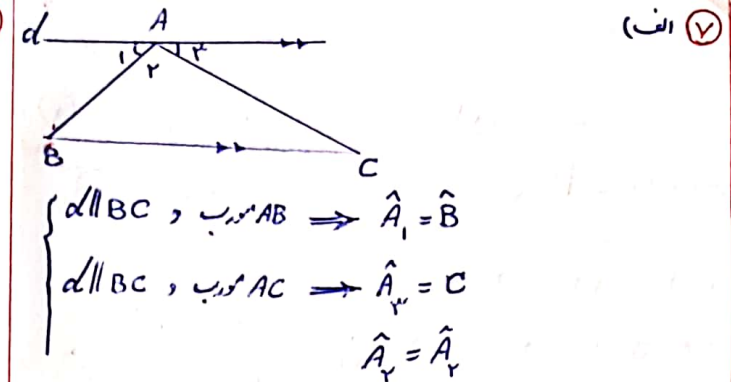 ۷ الف)
d A
۱ ۲ ۳
B C
d || BC , مورب AB ⇒ Â₁ = B̂
d || BC , مورب AC ⇒ Â₃ = C
Â₂ = Â₂